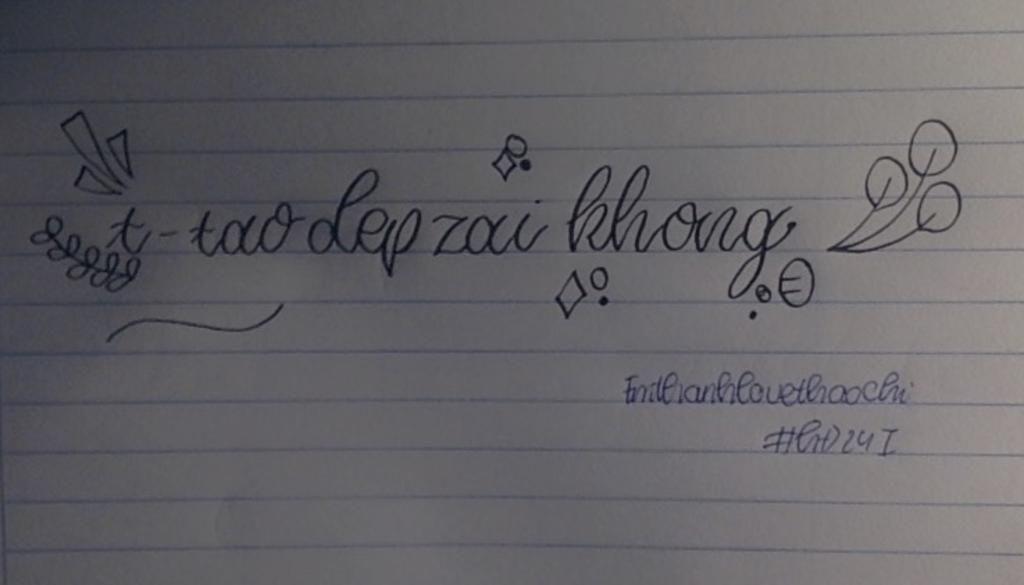 t-tao dep zai khong
Imthanhlovethaochi